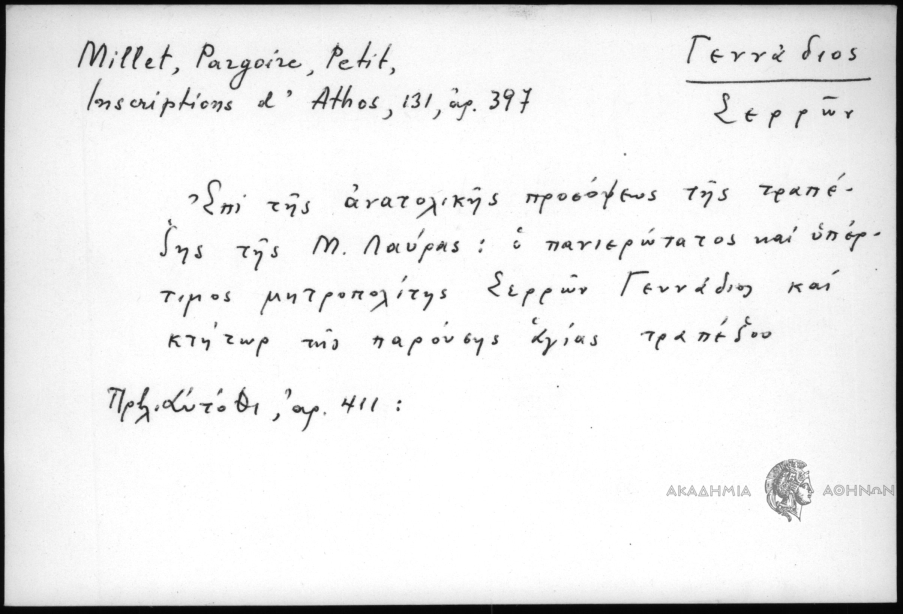 Millet, Pargoire, Petit,
Inscriptions d' Athos, 131, ἀρ. 397
Γεννάδιος
Σερρῶν
Ἐπί τῆς ἀνατολικῆς προσόψεως τῆς τραπέ-
ζης τῆς Μ. Λαύρας : ὁ πανιερώτατος καί ὑπέρ-
τιμος μητροπολίτης Σερρῶν Γεννάδιος καί
κτήτωρ τῆς παρούσης ἁγίας τραπέζου
Πρβλ. αὐτόθι, ἀρ. 411 :
ΑΚΑΔΗΜΙΑ ΑΘΗΝΩΝ